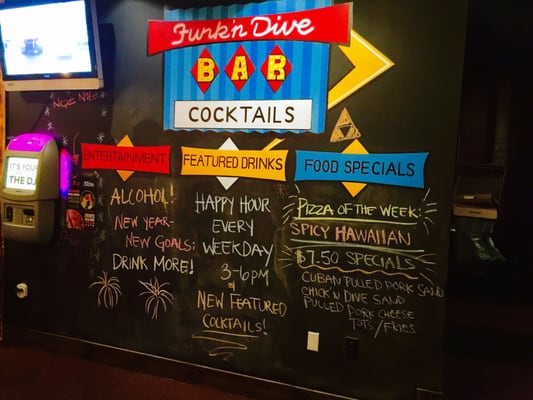 Funk'n Dive
BAR
COCKTAILS
IT'S YOU
THE DJ
ENTERTAINMENT
FEATURED DRINKS
FOOD SPECIALS
ALCOHOL!
NEW YEAR-
NEW GOALS:
DRINK MORE!
HAPPY HOUR
EVERY
WEEKDAY
3-6PM
&
NEW FEATURED
COCKTAILS!
PIZZA OF THE WEEK:
SPICY HAWAIIAN
$7.50 SPECIALS
CUBAN PULLED PORK SAND
CHICK'N DIVE SAND
PULLED PORK CHEESE
TOTS/FRIES